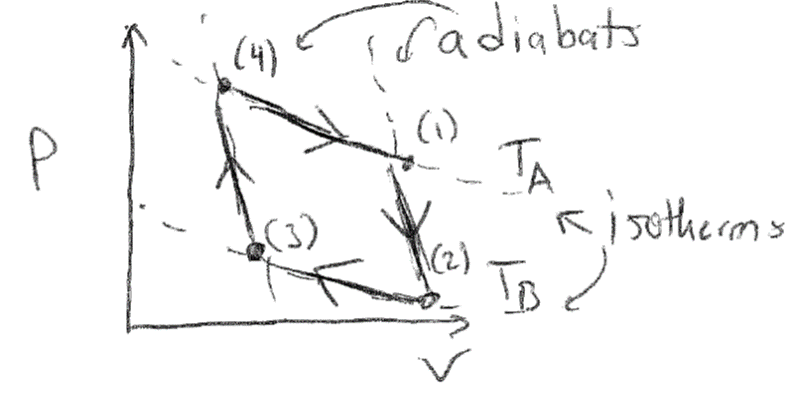 adiabats
(4)
(1)
P
T_A
isotherms
(3)
(2)
T_B
V